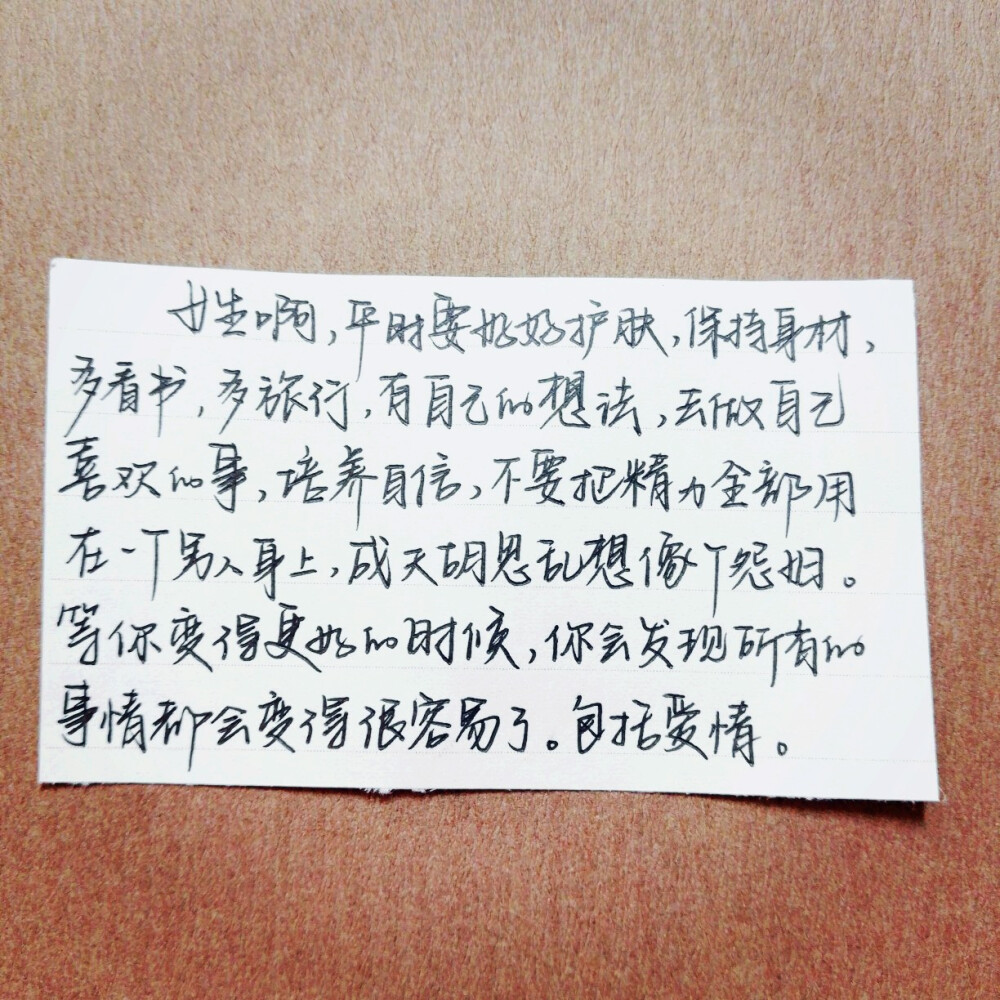 女生啊,平时要好好护肤,保持身材,
多看书,多旅行,有自己的想法,去做自己
喜欢的事,培养自信,不要把精力全部用
在一个男人身上,成天胡思乱想像个怨妇。
等你变得更好的时候,你会发现所有的
事情都会变得很容易了。包括爱情。